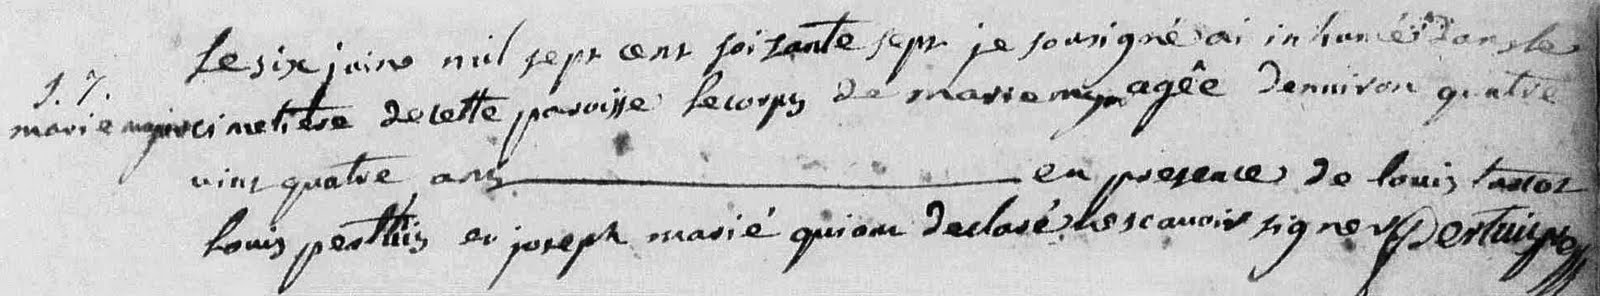 Le six juin mil sept cent soixante sept je sousigné ai inhumé dans le
S. 7.
marie
cimetiere de cette paroisse le corps de marie agêe d'environ quatre
vint quatre ans en presence de louis
louis pertuis et joseph marié qui ont declaré ne scavoir signer Pertuis